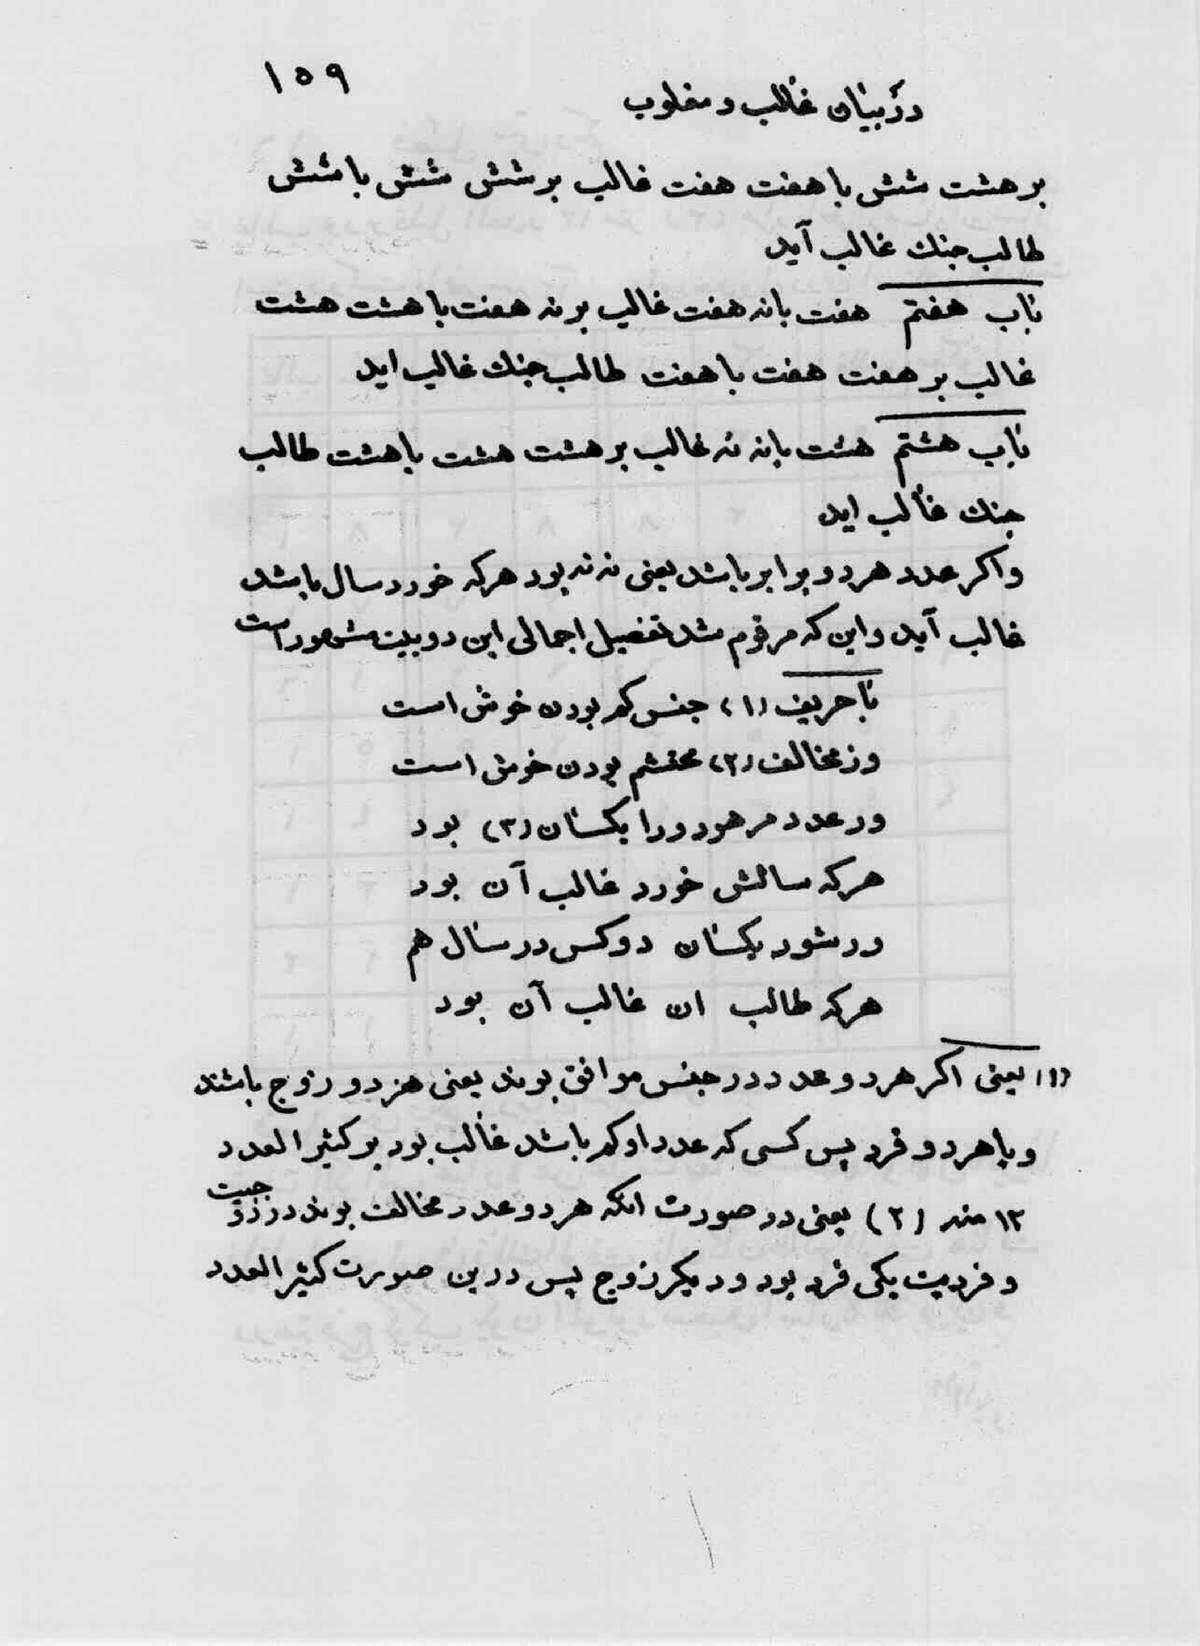 ۱۵۹
در بیان غالب و مغلوب
بر هشت شش با هفت هفت غالب بر شش شش با شش
طالب جنك غالب آید
باب هفتم هفت با نه هفت غالب بر نه هفت با هشت هشت
غالب بر هفت هفت با هفت طالب جنك غالب اید
باب هشتم هشت با نه نه غالب بر هشت هشت با هشت طالب
جنك غالب اید
و اکر عدد هر دو برابر باشد یعنی نه نه بود هرکه خورد سال باشد
غالب آید و این که مرقوم شد تفصیل اجمالی این دو بیت مشهور است
با حریف (۱) جنس کم بودن خوش است
وز مخالف (۲) محتشم بودن خوش است
ور عدد مر هر دو را یکسان (۳) بود
هرکه سالش خورد غالب آن بود
ور شود یکسان دو کس در سال هم
هرکه طالب ان غالب آن بود
(۱) یعنی اکر هر دو عدد در جنس موافق بوند یعنی هر دو زوج باشند
و یا هر دو فرد پس کسی که عدد او کم باشد غالب بود بر کثیر العدد
۱۲ منه (۲) یعنی در صورت انکه هر دو عدد مخالف بوند در زوجیت
و فردیت یکی فرد بود و دیکر زوج پس درین صورت کثیر العدد